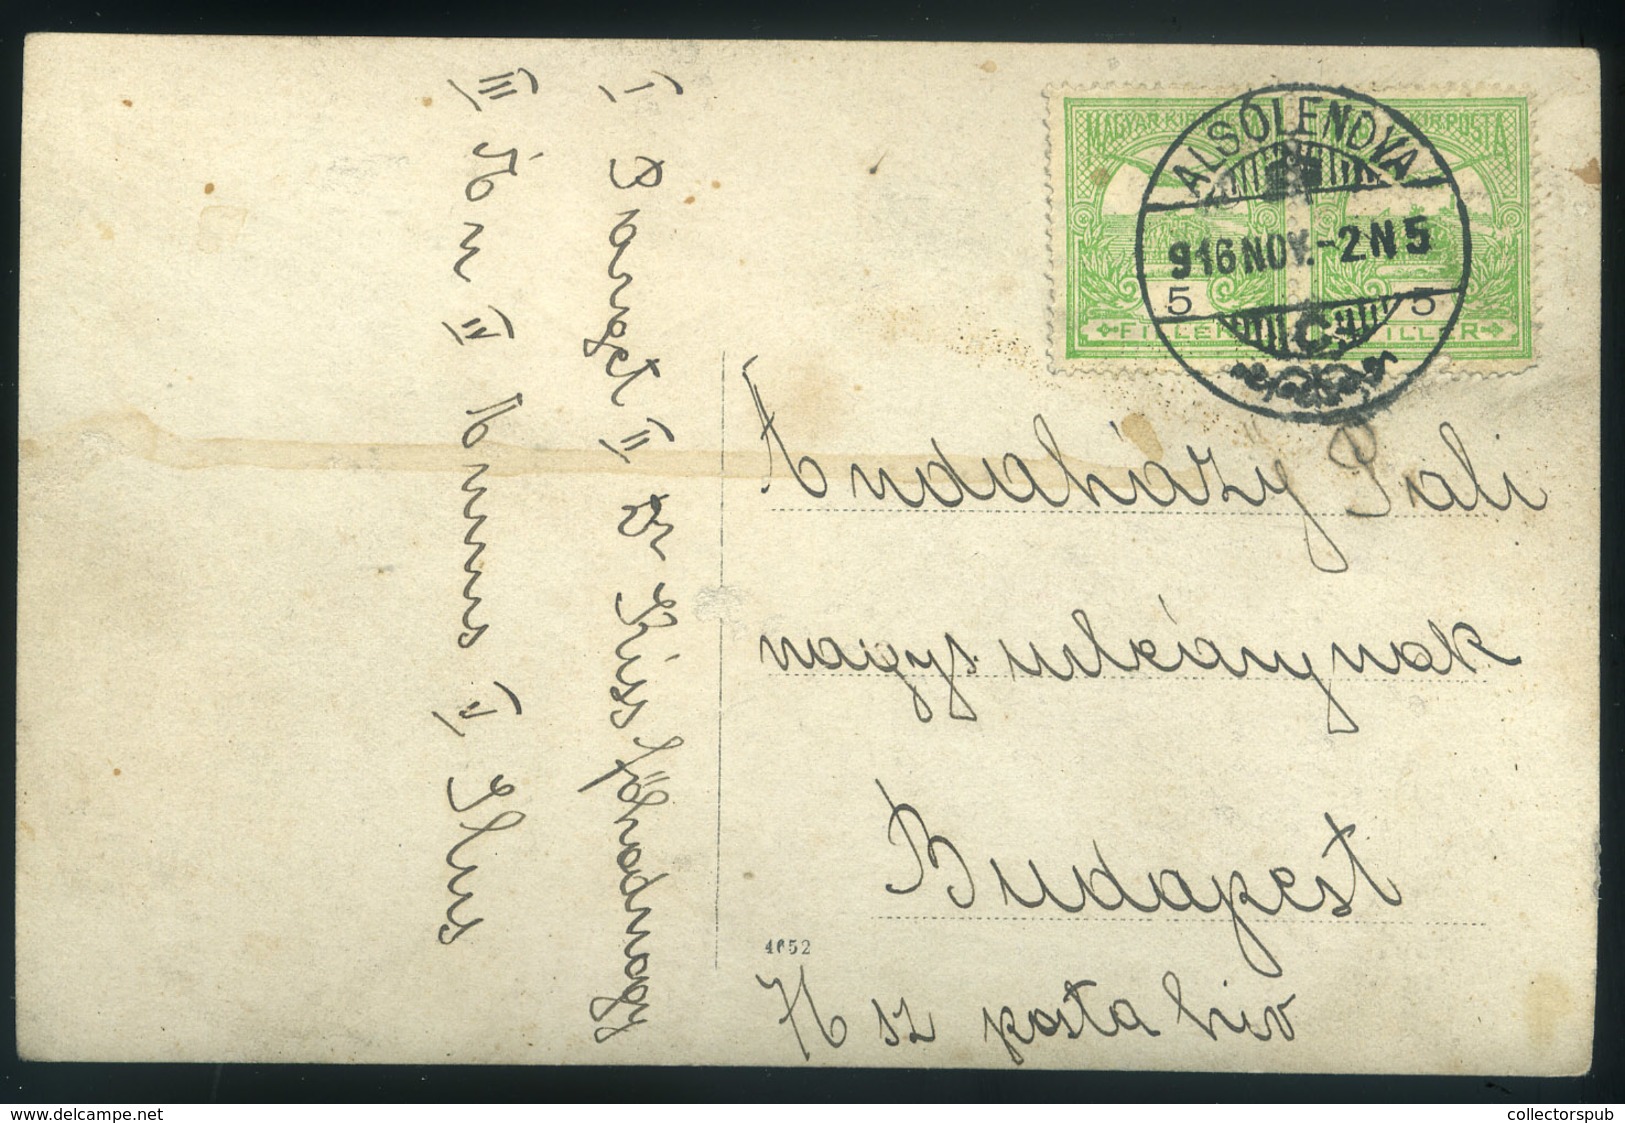 I Barget II Dr Kiss főhadnagy
III Én IV Nunus V Ilus
MAGYAR KIR POSTA
ALSÓLENDVA
916 NOV.-2 N 5
5 5
FILLÉR FILLÉR
C
Andaházy Pali
nagys. urleánynak
Budapest
4652
H sz posta hiv
www.delcampe.net
collectorspub